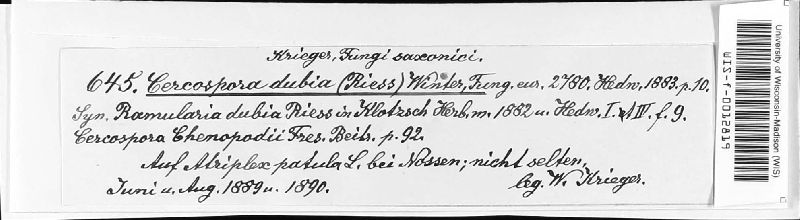 Krieger, Fungi saxonici.
645. Cercospora dubia (Riess) Winter, Fung. eur. 2780. Hedw. 1883. p. 10.
Syn. Ramularia dubia Riess in Klotzsch Herb. m. 1882 u. Hedw. I. t. IV. f. 9.
Cercospora Chenopodii Fres. Beitr. p. 92.
Auf Atriplex patula L. bei Nossen; nicht selten,
Juni u. Aug. 1889 u. 1890. leg. W. Krieger.
University of Wisconsin-Madison (WIS)
WIS-f-0012819